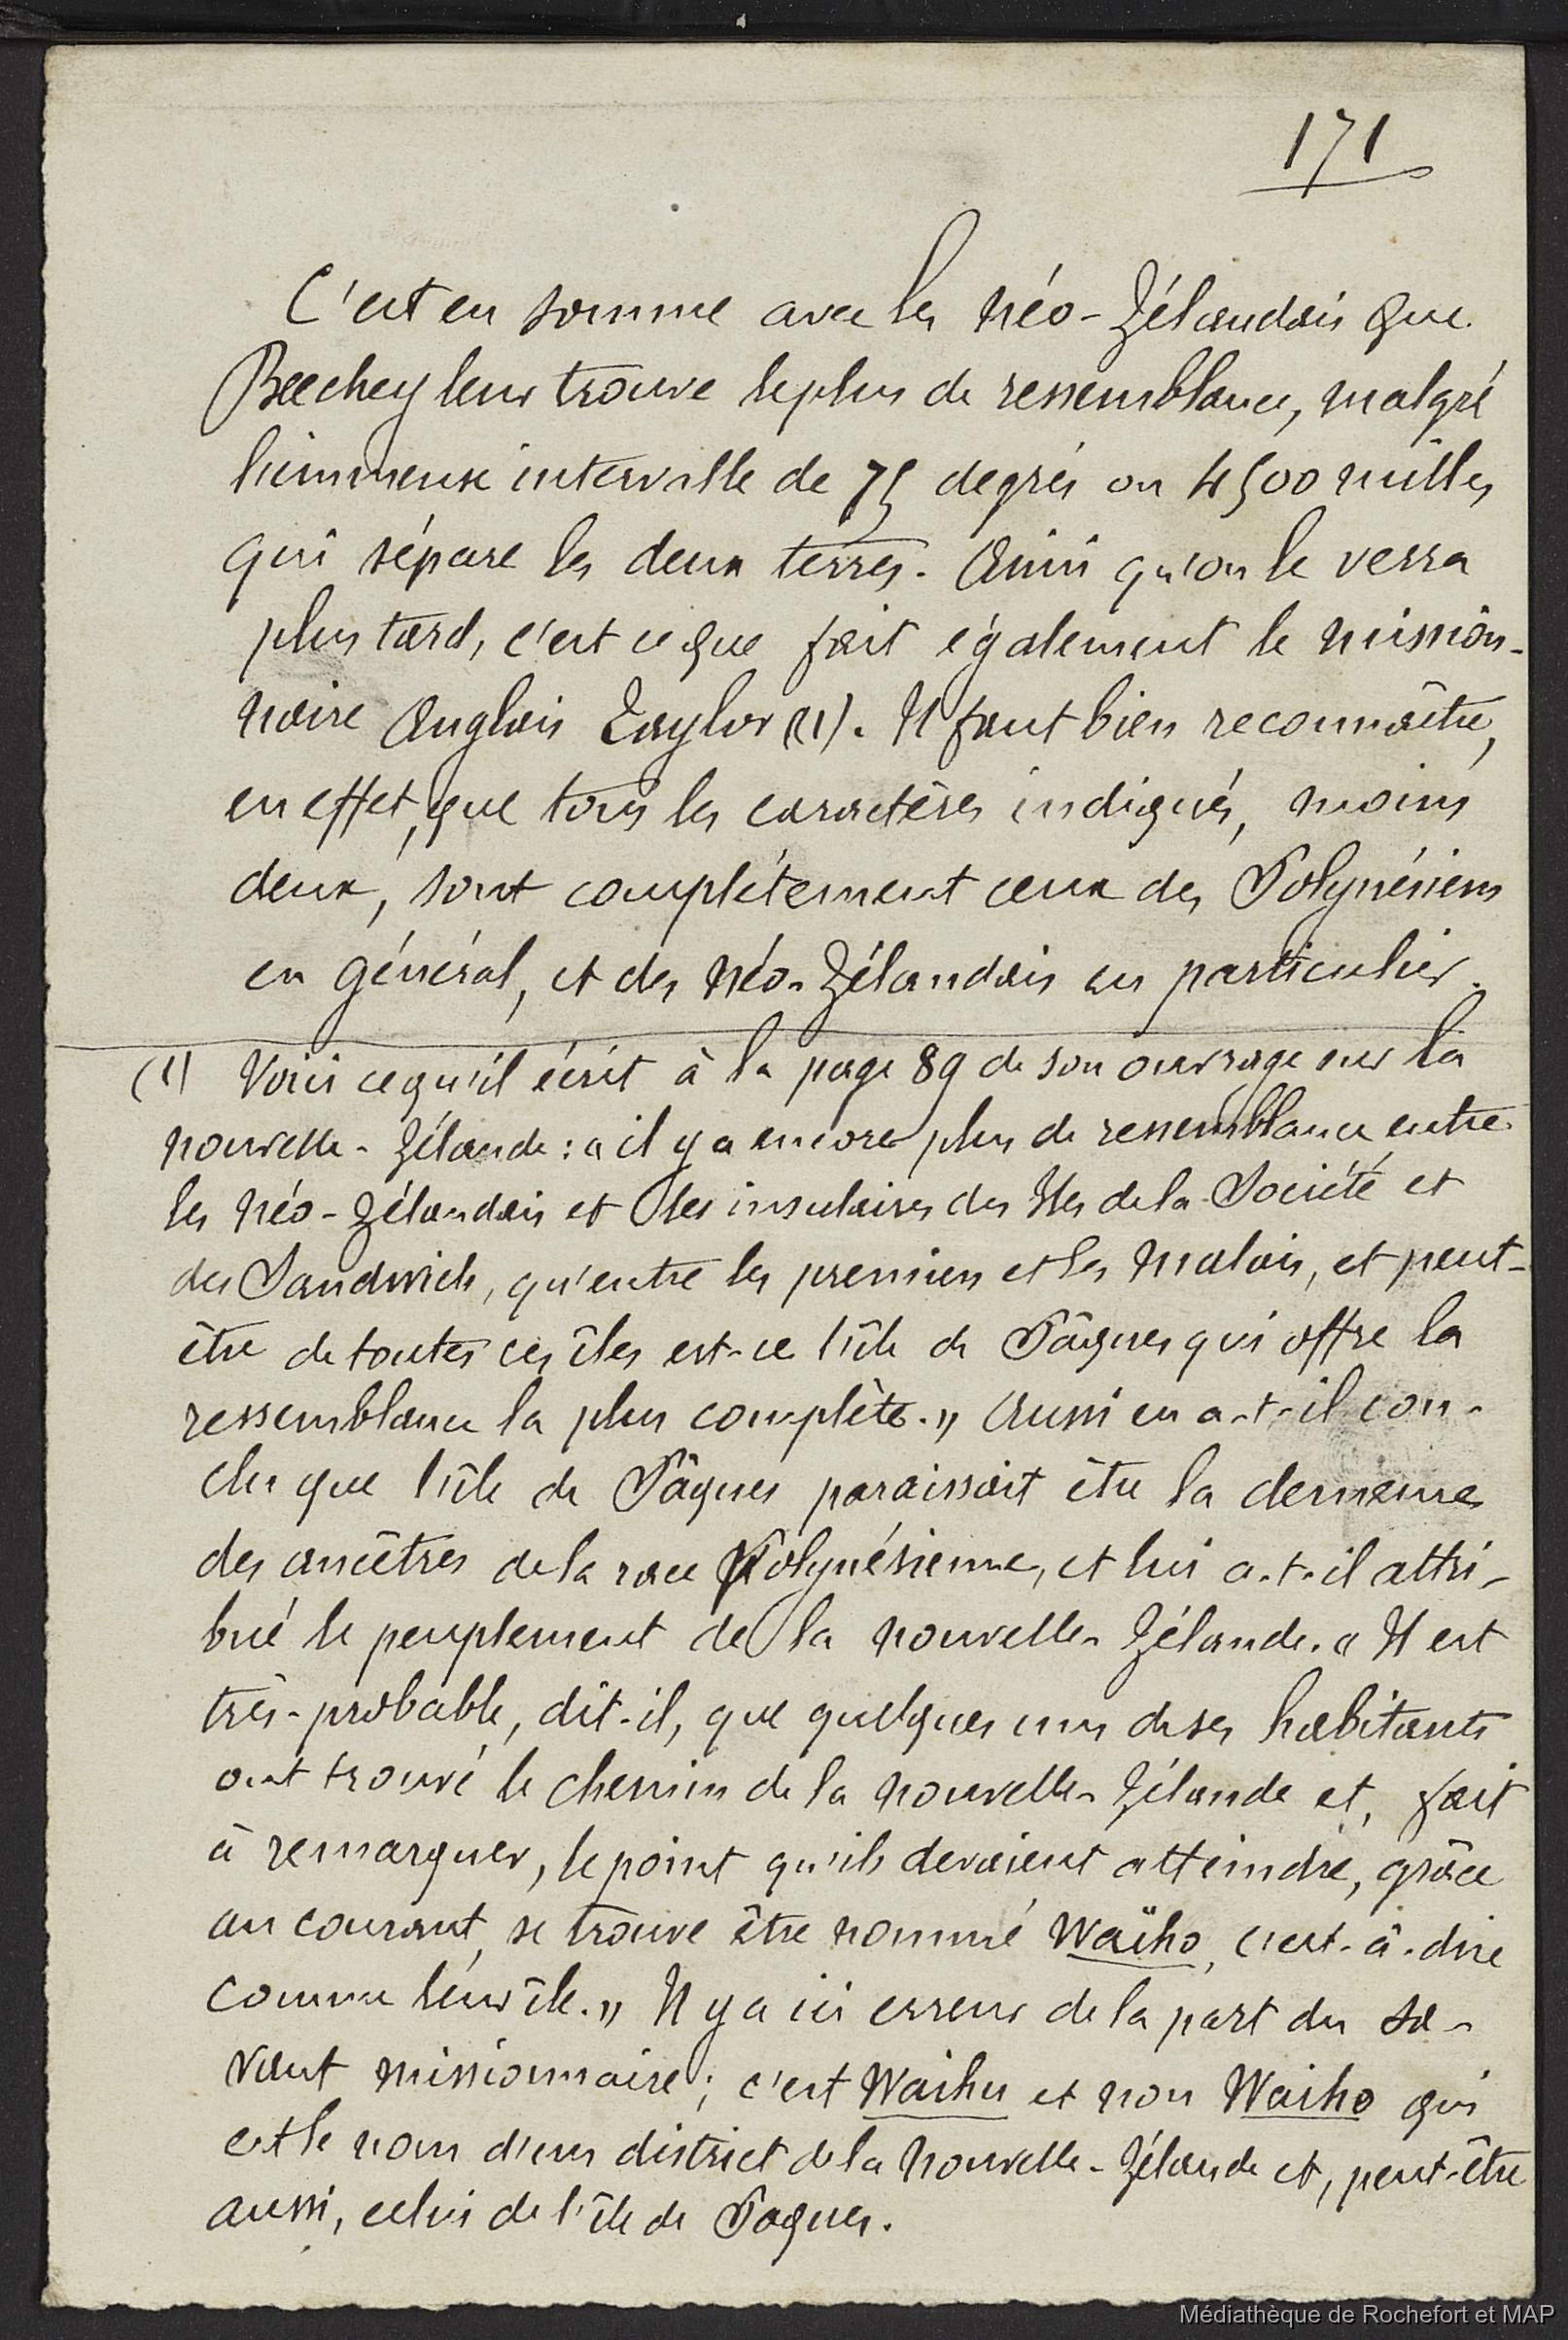 171
C'est en somme avec les néo-Zélandais que
Beechey leur trouve le plus de ressemblance, malgré
l'immense intervalle de 75 degrés ou 4500 milles
qui sépare les deux terres. Ainsi qu'on le verra
plus tard, c'est ce que fait également le mission-
naire Anglais Taylor (1). Il faut bien reconnaître,
en effet, que tous les caractères indiqués, moins
deux, sont complétement ceux des Polynésiens
en général, et des néo-Zélandais en particulier.
(1) Voici ce qu'il écrit à la page 89 de son ouvrage sur la
nouvelle-Zélande : « il y a encore plus de ressemblance entre
les néo-Zélandais et les insulaires des Iles de la Société et
des Sandwich, qu'entre les premiers et les Malais, et peut-
être de toutes ces îles est-ce l'île de Pâques qui offre la
ressemblance la plus complète. » Aussi en a-t-il con-
clu que l'île de Pâques paraissait être la demeure
des ancêtres de la race Polynésienne, et lui a-t-il attri-
bué le peuplement de la nouvelle-Zélande. « Il est
très-probable, dit-il, que quelques uns de ses habitants
ont trouvé le chemin de la nouvelle-Zélande et, fait
à remarquer, le point qu'ils devaient atteindre, grâce
au courant, se trouve être nommé Waïho, c'est-à-dire
comme leur île. » Il y a ici erreur de la part du sa-
vant missionnaire ; c'est Waihu et non Waiho qui
est le nom d'un district de la nouvelle-Zélande et, peut-être
aussi, celui de l'île de Paques.
Médiathèque de Rochefort et MAP